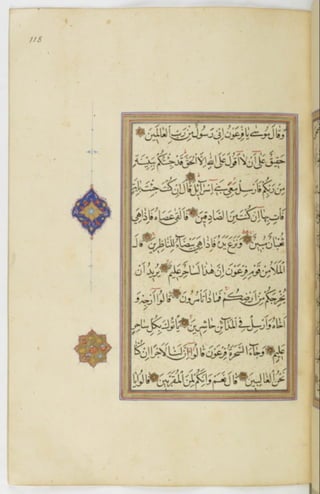 115
وقال موسى يا فرعون انى رسول من رب العالمين
حقيق على ان لا اقول على الله الا الحق قد جئتكم ببينة
من ربكم فارسل معى بنى اسرائيل قال ان كنت جئت باية
فات بها ان كنت من الصادقين فالقى عصاه فاذا هى
ثعبان مبين ونزع يده فاذا هى بيضاء للناظرين قال
الملأ من قوم فرعون ان هذا لساحر عليم يريد ان
يخرجكم من ارضكم فماذا تأمرون قالوا ارجه و
اخاه وارسل فى المدائن حاشرين يأتوك بكل ساحر
عليم وجاء السحرة فرعون قالوا ان لنا لاجرا ان كنا
نحن الغالبين قال نعم وانكم لمن المقربين قالوا يا